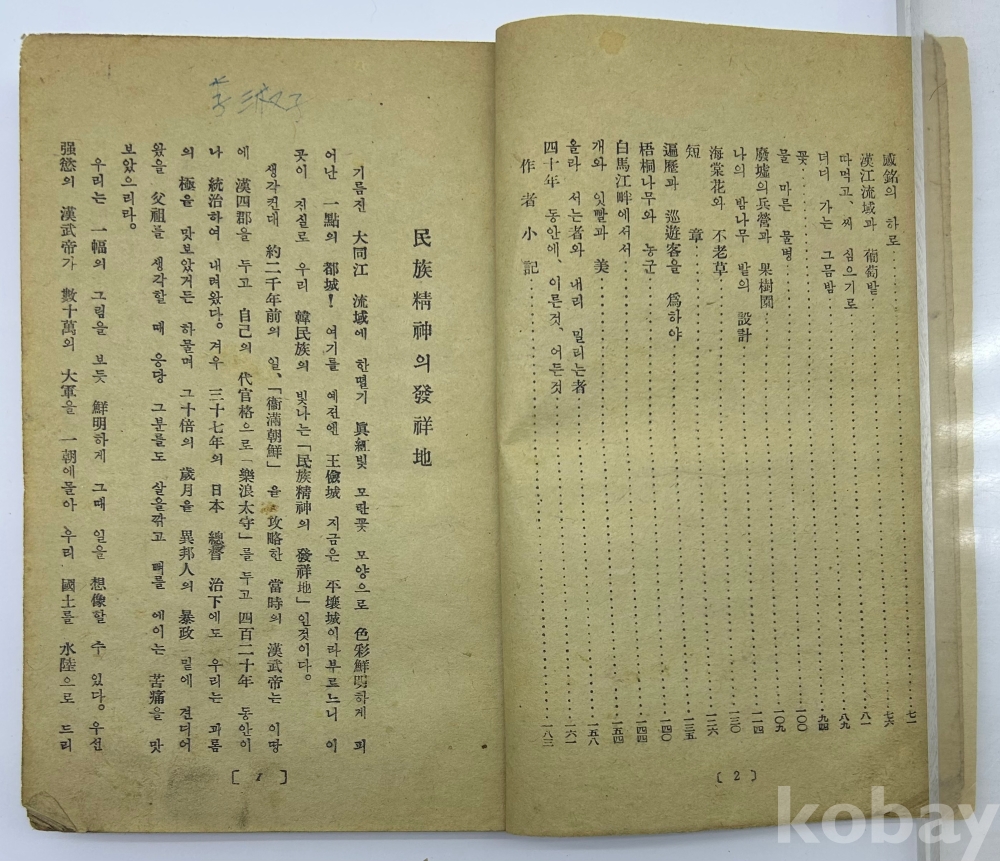 感銘의 하로 七六
漢江流域과 葡萄밭 八一
따먹고、씨 심으기로 八九
더더 가는 그믐밤 九四
꽃 一〇〇
물 마른 물병 一〇九
廢墟의 兵營과 果樹園 一一四
나의 밤나무 밭의 設計 一二〇
海棠花와 不老草 一二六
短章 一三五
遍歷과 巡遊客을 爲하야 一四〇
梧桐나무와 농군 一四四
白馬江畔에서서 一五四
개와 잇빨과 美 一五八
올라 서는者와 내리 밀리는者 一六一
四十年 동안에、이룬것、어든것
作者小記 一八三
[ 2 ]
民族精神의 發祥地
기름진 大同江 流域에 한떨기 眞紅빛 모란꽃 모양으로 色彩鮮明하게 피
어난 一點의 都城! 여기를 예전엔 王儉城 지금은 平壤城이라부르느니 이
곳이 진실로 우리 韓民族의 빛나는「民族精神의 發祥地」인것이다。
생각컨대 約二千年前의 일、「衞滿朝鮮」을 攻略한 當時의 漢武帝는 이땅
에 漢四郡을 두고 自己의 代官格으로「樂浪太守」를 두고 四百二十年 동안이
나 統治하여 내려왔다。겨우 三十七年의 日本 總督 治下에도 우리는 괴롬
의 極을 맛보았거든 하물며 그十倍의 歲月을 異邦人의 暴政 밑에 견디어
왔을 父祖를 생각할 때 응당 그분들도 살을깎고 뼈를 에이는 苦痛을 맛
보았으리라。
우리는 一幅의 그림을 보듯 鮮明하게 그때 일을 想像할 수 있다。우선
强慾의 漢武帝가 數十萬의 大軍을 一朝에몰아 우리 國土를 水陸으로 드리
[ 1 ]
kobay